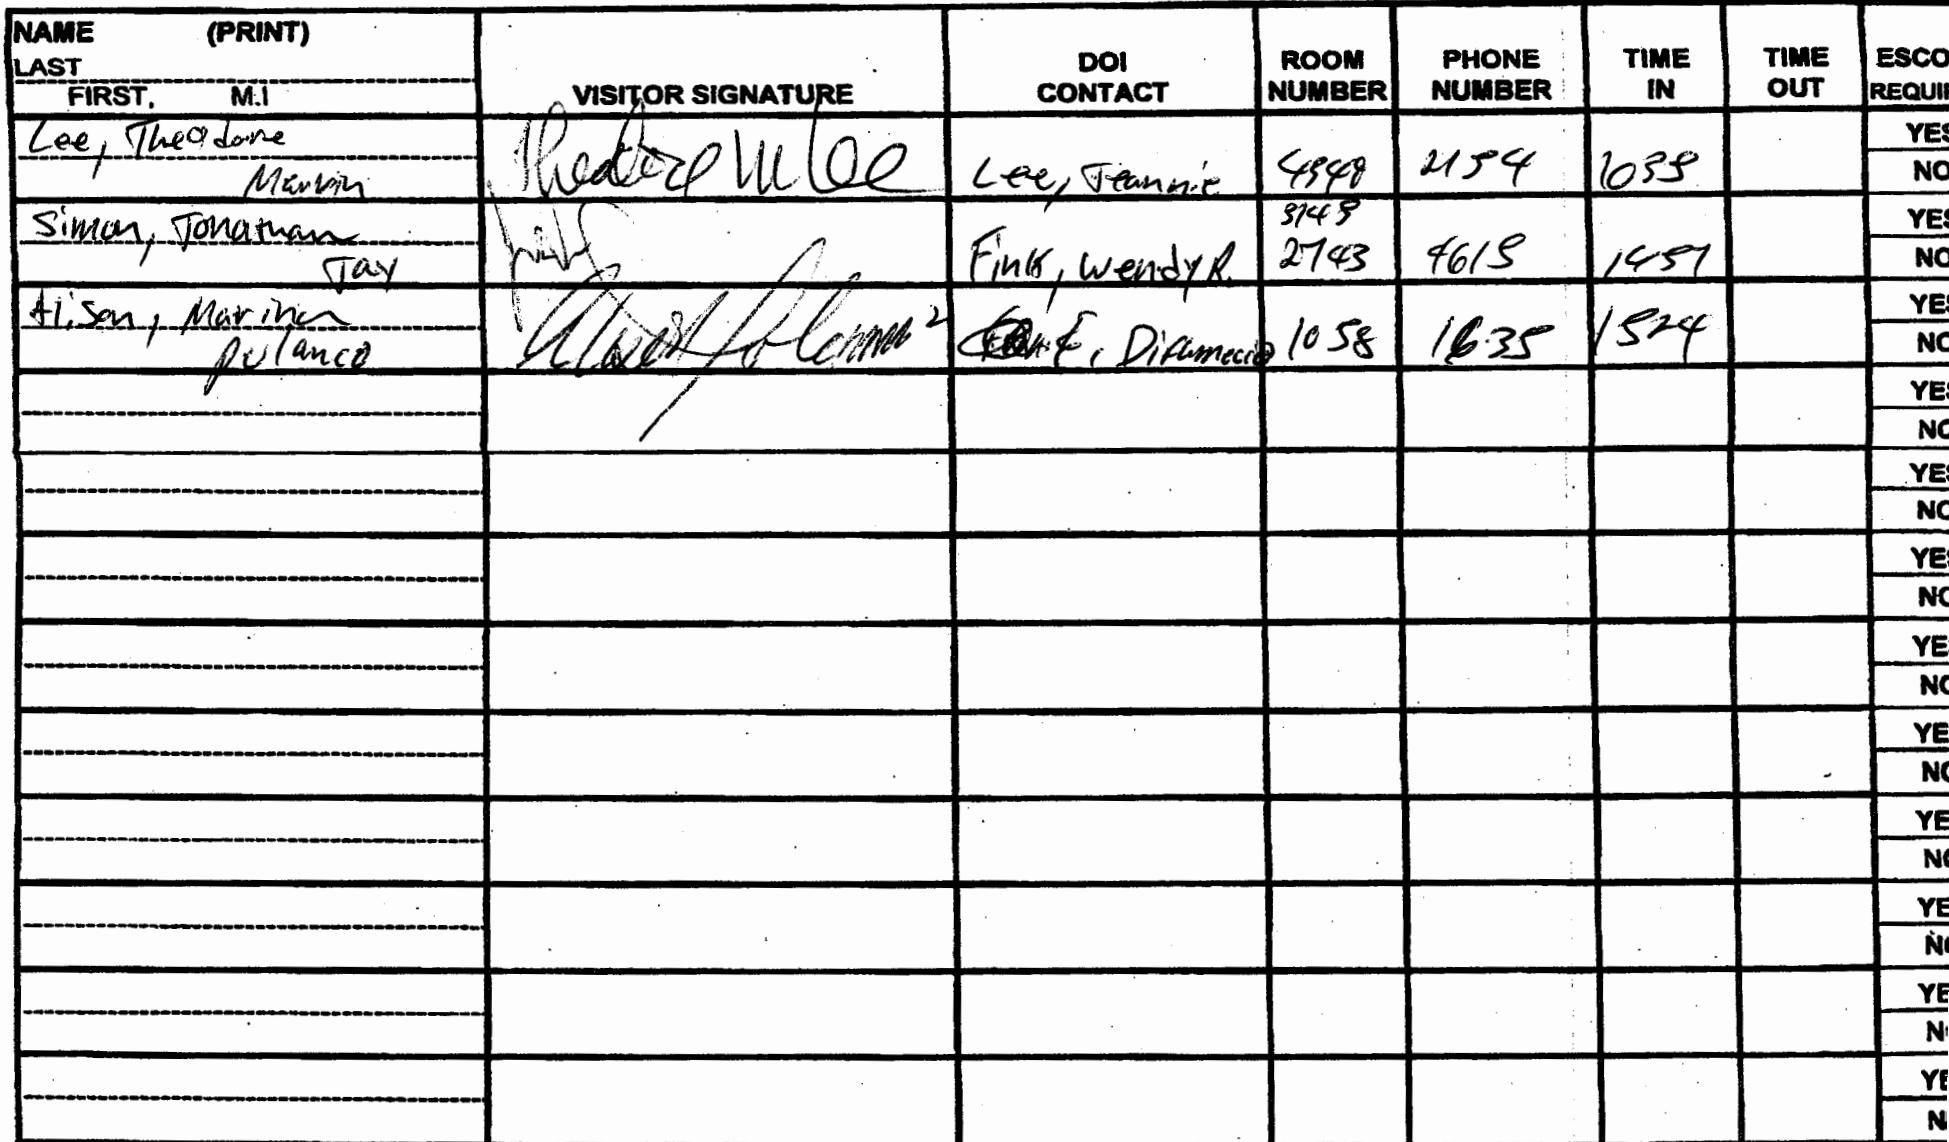 NAME (PRINT)
LAST
FIRST, M.I
VISITOR SIGNATURE
DOI
CONTACT
ROOM
NUMBER
PHONE
NUMBER
TIME
IN
TIME
OUT
ESCO
REQUI
Lee, Theodore
Marvin
Theodore M Lee
Lee, Jeannie
4340
1039
YES
NO
Simon, Jonathan
Jay
Fink, Wendy R.
2743
4615
1457
YES
NO
Marina
Polanco
1058
1635
1524
YES
NO
YES
NO
YES
NO
YES
NO
YE
NO
YE
NO
YE
NO
YE
NO
YE
N
YE
N